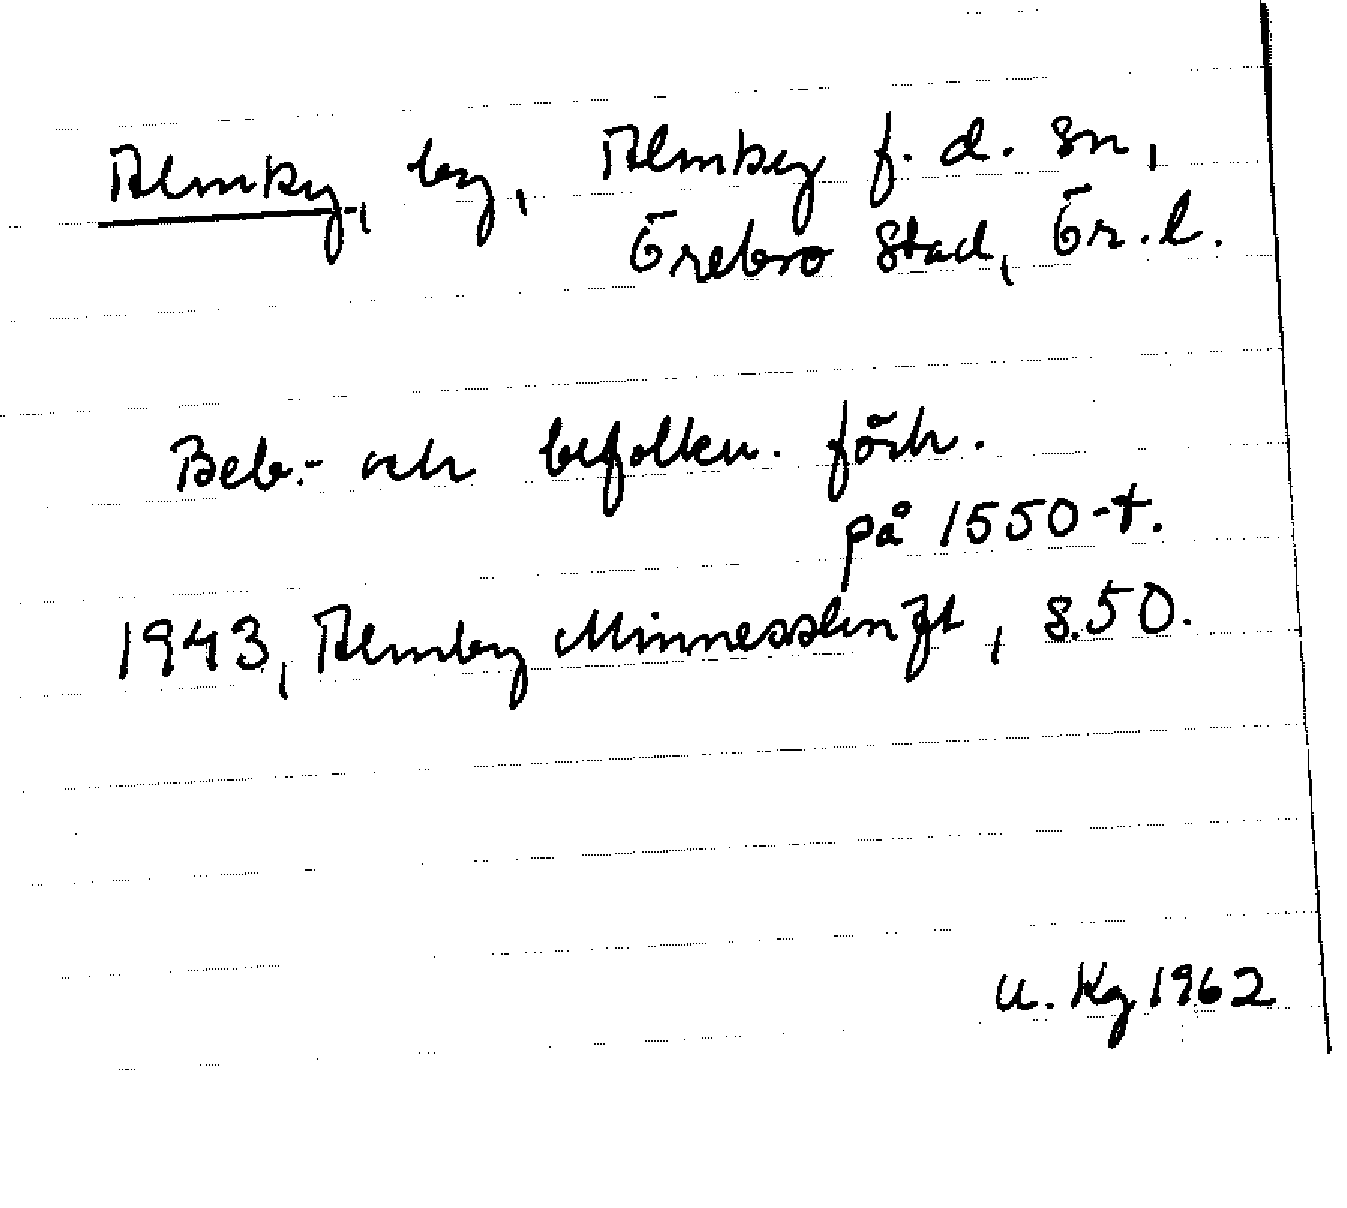 Almby, by, Almby f. d. sn,
Örebro stad, Ör. l.
Beb.- och befolkn. förh.
på 1550-t.
1943, Almby Minnesskrift, s.50.
U. Kg 1962